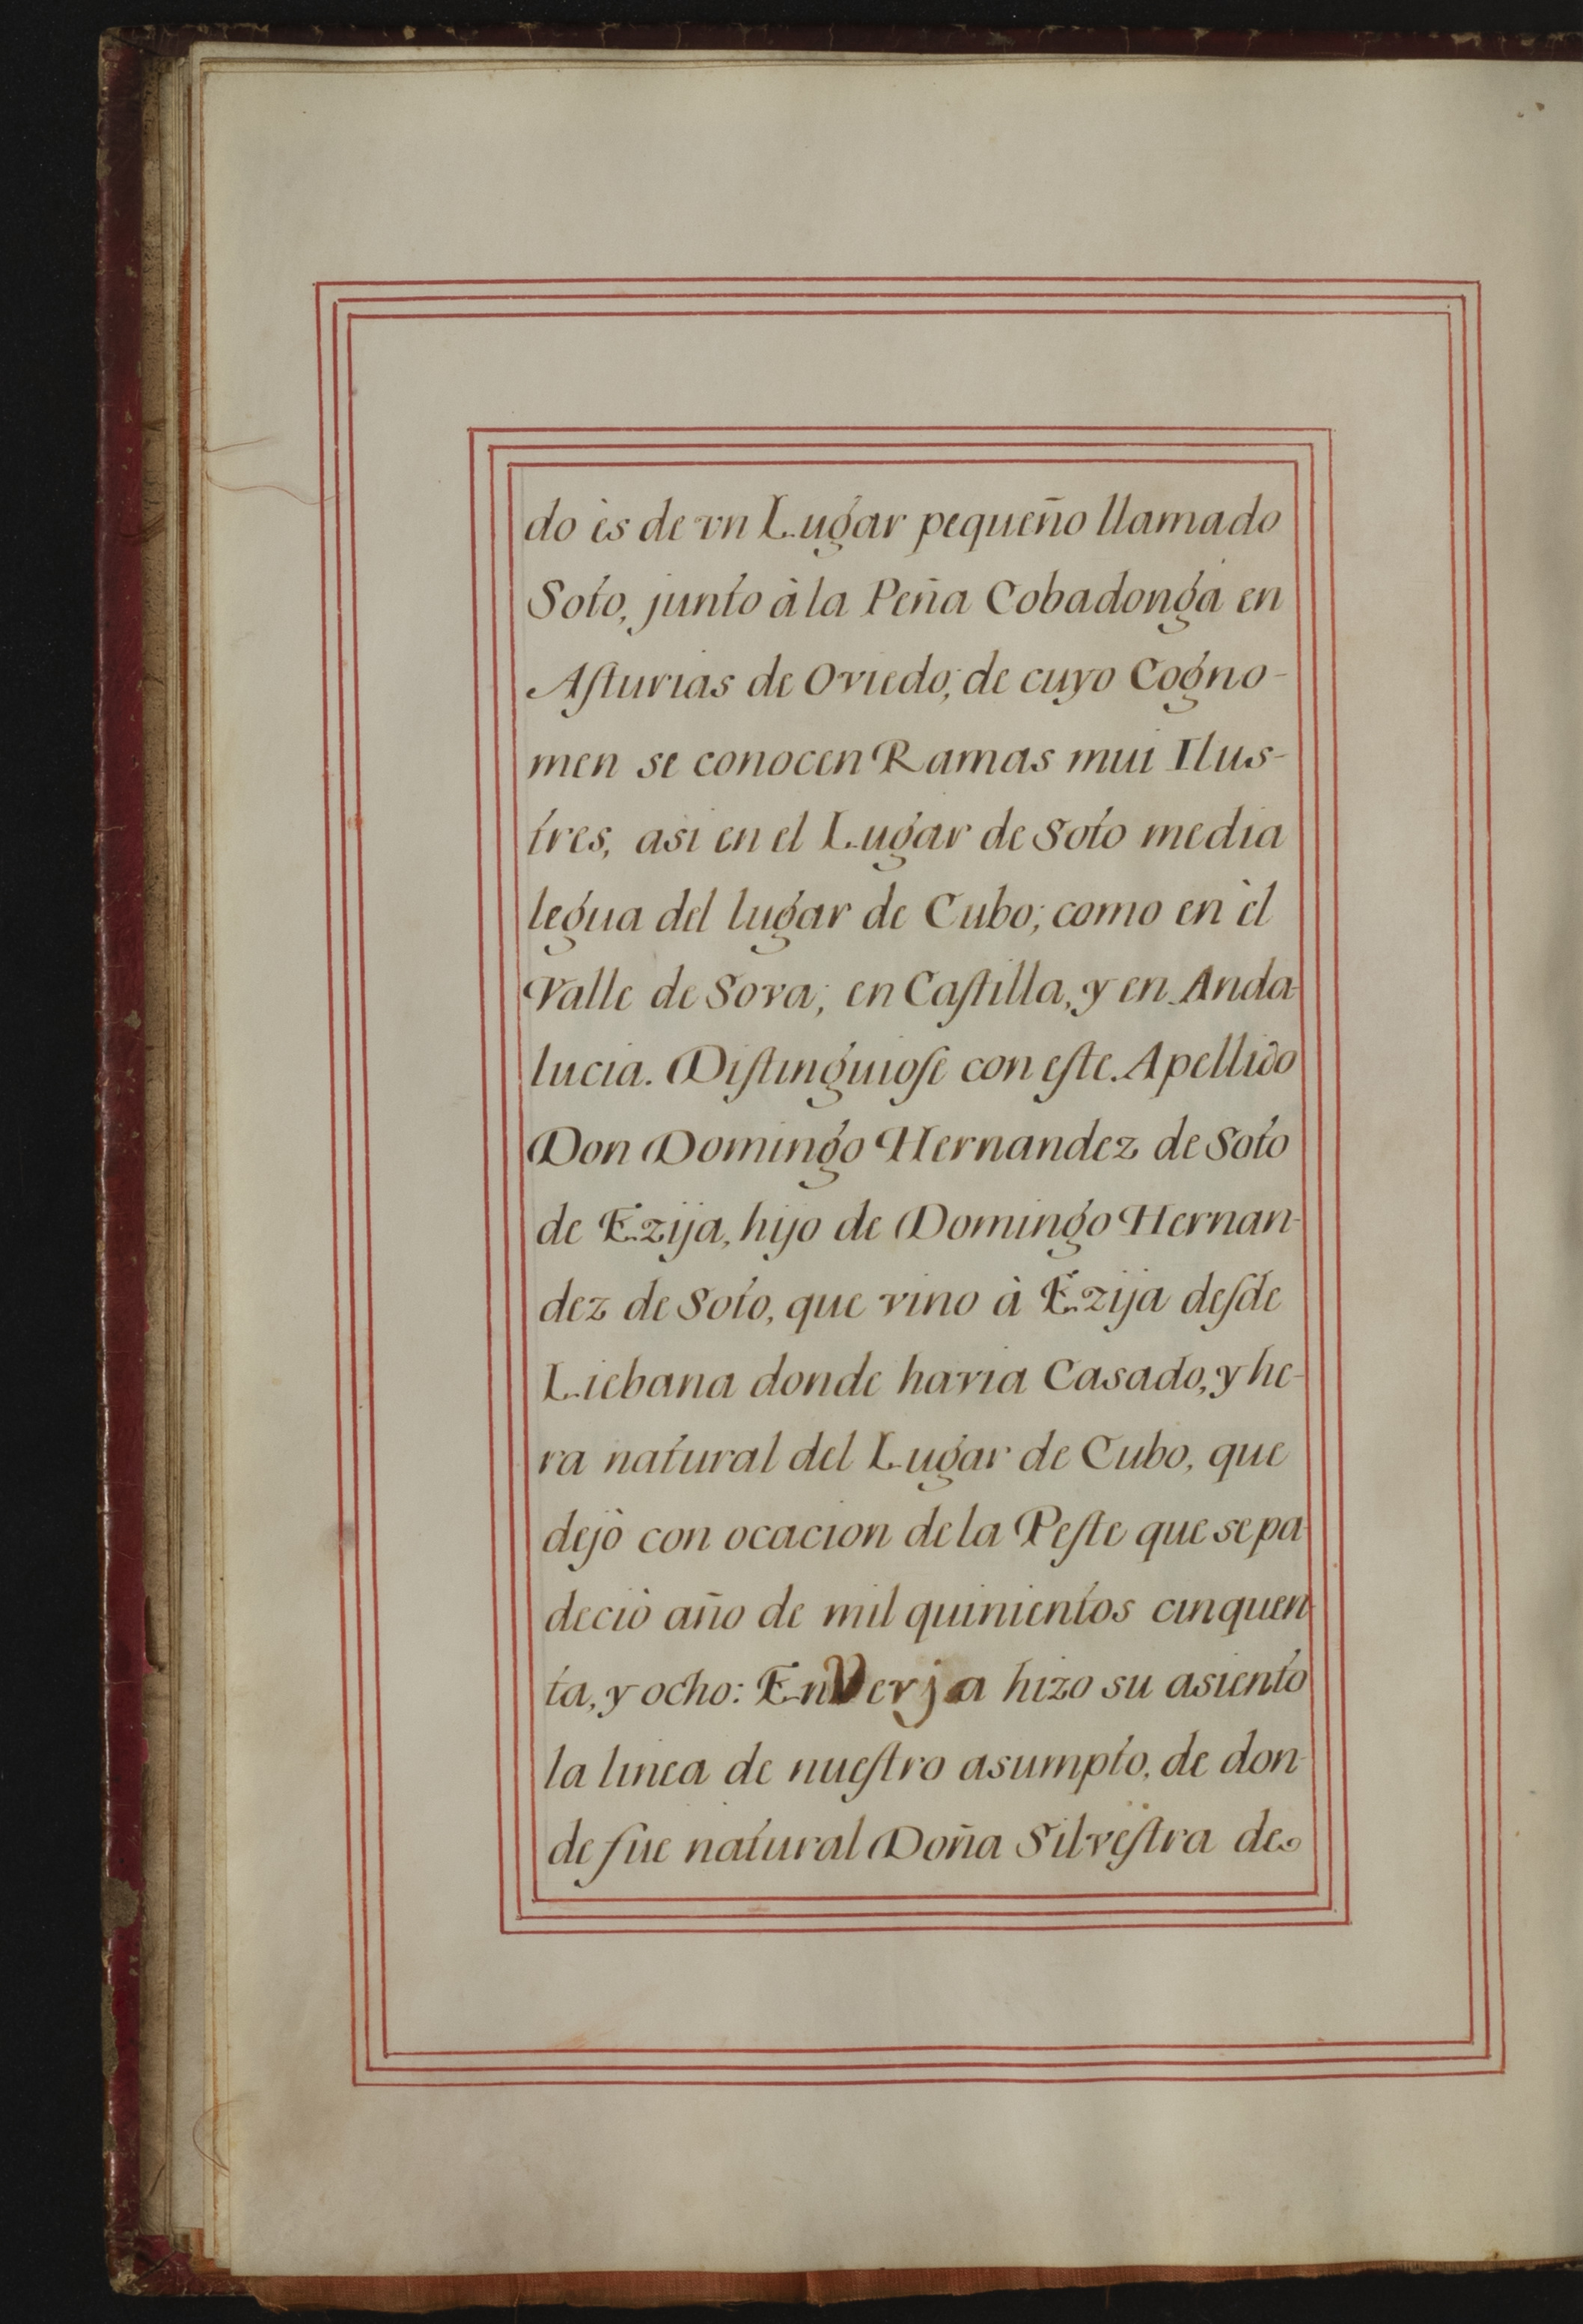 do ès de vn Lugar pequeño llamado
Soto, junto à la Peña Cobadonga en
Aſturias de Oviedo; de cuyo Cogno-
men se conocen Ramas mui Ilus-
tres, asi en el Lugar de Soto media
legua del lugar de Cubo; como en èl
Valle de Sova; en Caſtilla, y en Anda-
lucia. Diſtinguioſe con eſte Apellido
Don Domingo Hernandez de Soto
de Ezija, hijo de Domingo Hernan-
dez de Soto, que vino à Ezija deſde
Liebana donde havia Casado, y he-
ra natural del Lugar de Cubo, que
dejò con ocacion de la Peſte que se pa-
deciò año de mil quinientos cinquen-
ta, y ocho: En Verja hizo su asiento
la linea de nueſtro asumpto, de don-
de fue natural Doña Silveſtra de